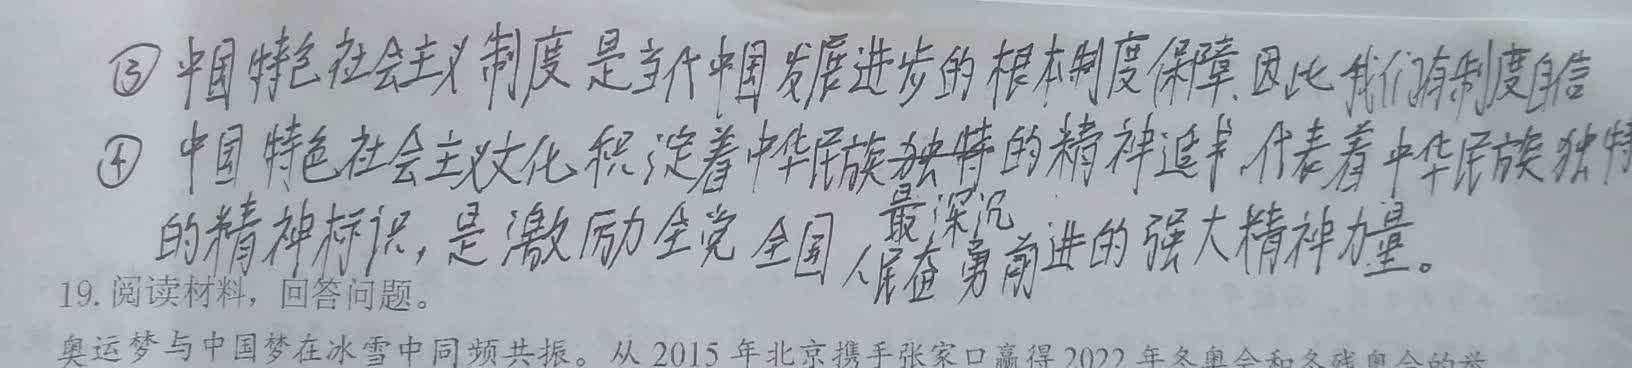 ③ 中国特色社会主义制度是当代中国发展进步的根本制度保障.因此我们有制度自信
④ 中国特色社会主义文化积淀着中华民族独特的精神追求,代表着中华民族独特
最深沉
的精神标识,是激励全党全国人民奋勇前进的强大精神力量。
19. 阅读材料，回答问题。
奥运梦与中国梦在冰雪中同频共振。从2015年北京携手张家口赢得2022年冬奥会和冬残奥会的举